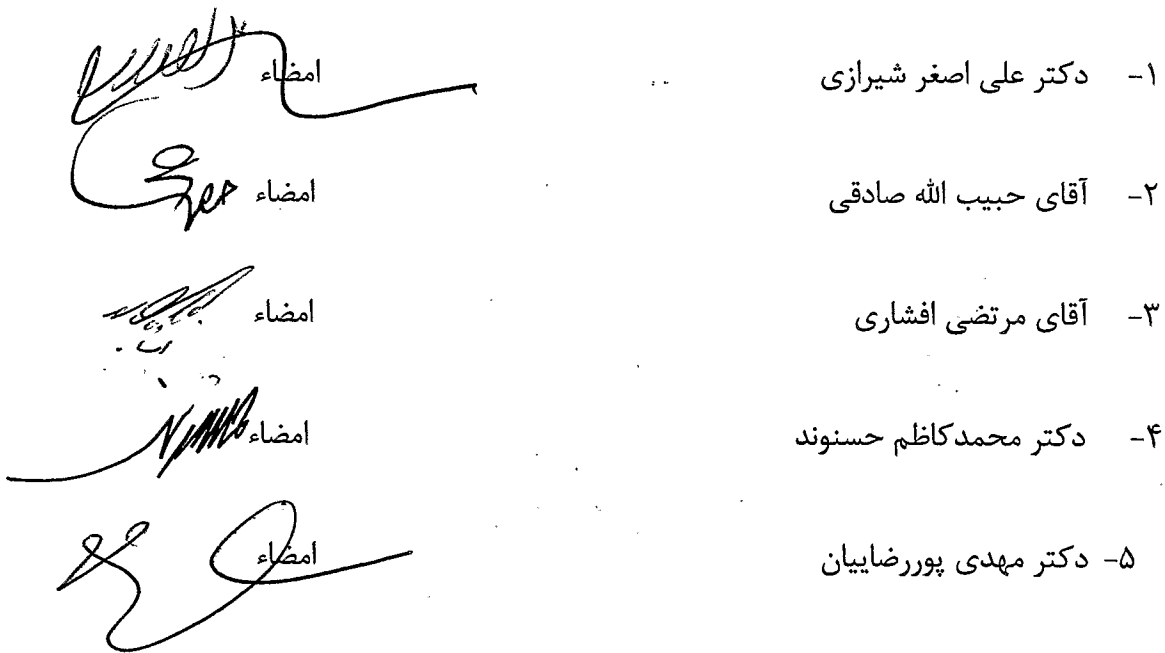 ۱- دکتر علی اصغر شیرازی امضاء
۲- آقای حبیب الله صادقی امضاء
۳- آقای مرتضی افشاری امضاء
۴- دکتر محمدکاظم حسنوند امضاء
۵- دکتر مهدی پوررضاییان امضاء